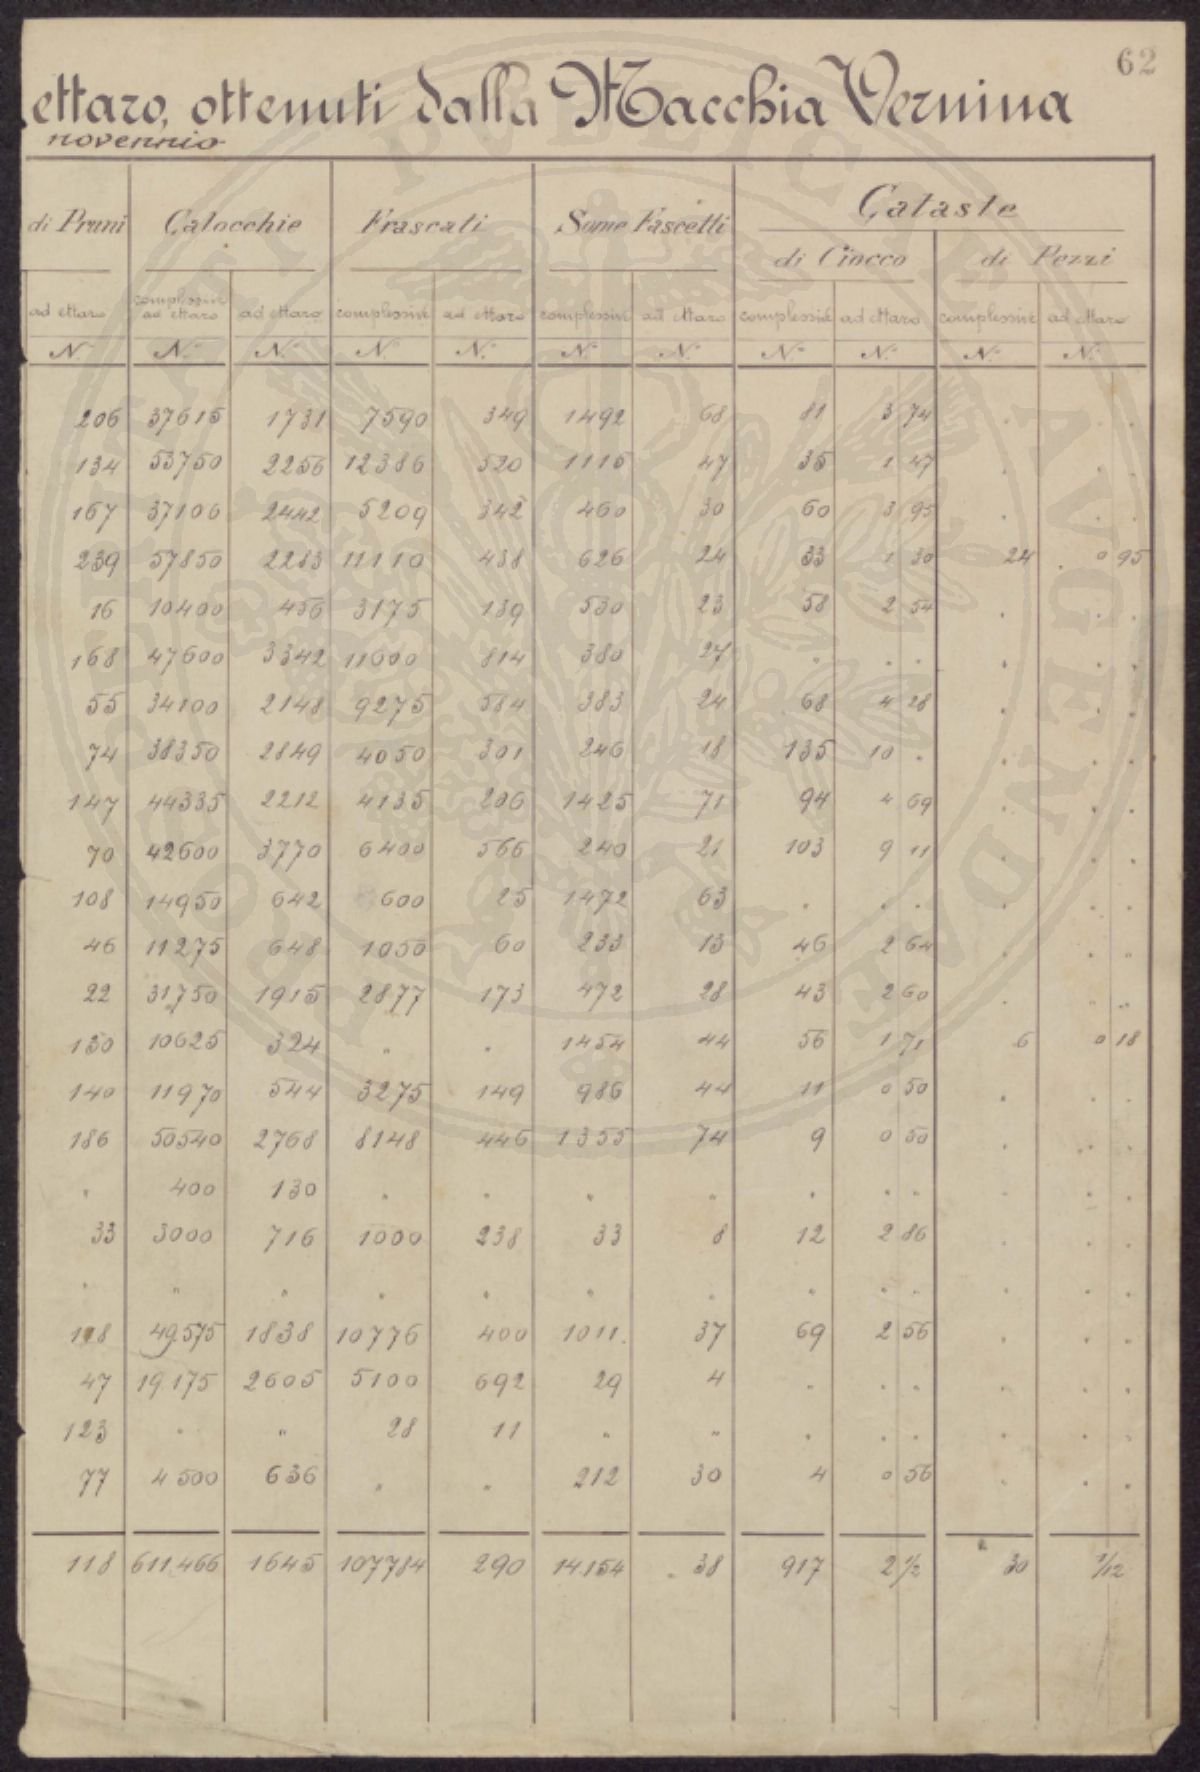 62
ettaro, ottenuti dalla Macchia Vernina
novennio
di Pruni Calocchie Frascati Some Fascetti Cataste
di Ciocco di Pezzi
ad ettaro complessive ad ettaro ad ettaro complessive ad ettaro complessive ad ettaro complessive ad ettaro complessive ad ettaro
N. N.º N.º N.º N.º N.º N.º N.º N.º N.º N.º
206 37615 1731 7590 349 1492 68 81 3 74 . . .
134 53750 2256 12386 520 1115 47 35 1 47 . . .
167 37106 2442 5209 342 460 30 60 3 95 . . .
239 57850 2283 11110 438 626 24 33 1 30 24 0 95
16 10400 456 3175 139 530 23 58 2 54 . . .
168 47600 3342 11600 814 380 27 . . . . . .
55 34100 2148 9275 584 383 24 68 4 28 . . .
74 38350 2849 4050 301 246 18 135 10 . . . .
147 44335 2212 4135 206 1425 71 94 4 69 . . .
70 42600 3770 6400 566 240 21 103 9 11 . . .
108 14950 642 600 25 1472 63 . . . . . .
46 11275 648 1050 60 233 13 46 2 64 . . "
22 31750 1915 2877 173 472 28 43 2 60 . . "
130 10625 324 " " 1454 44 56 1 71 6 0 18
140 11970 544 3275 149 986 44 11 0 50 . . .
186 50540 2768 8148 446 1355 74 9 0 50 . . .
" 400 130 " " " " " " " . . .
33 3000 716 1000 238 33 8 12 2 86 . . .
" " " " " " " " " " . . .
118 49575 1838 10776 400 1011. 37 69 2 56 . . .
47 19.175 2605 5100 692 29 4 . . . . . .
123 " " 28 11 " " . . . . . .
77 4500 636 " " 212 30 4 0 56 . . .
118 611.466 1645 107784 290 14.154 38 917 2 1/2 30 1/12